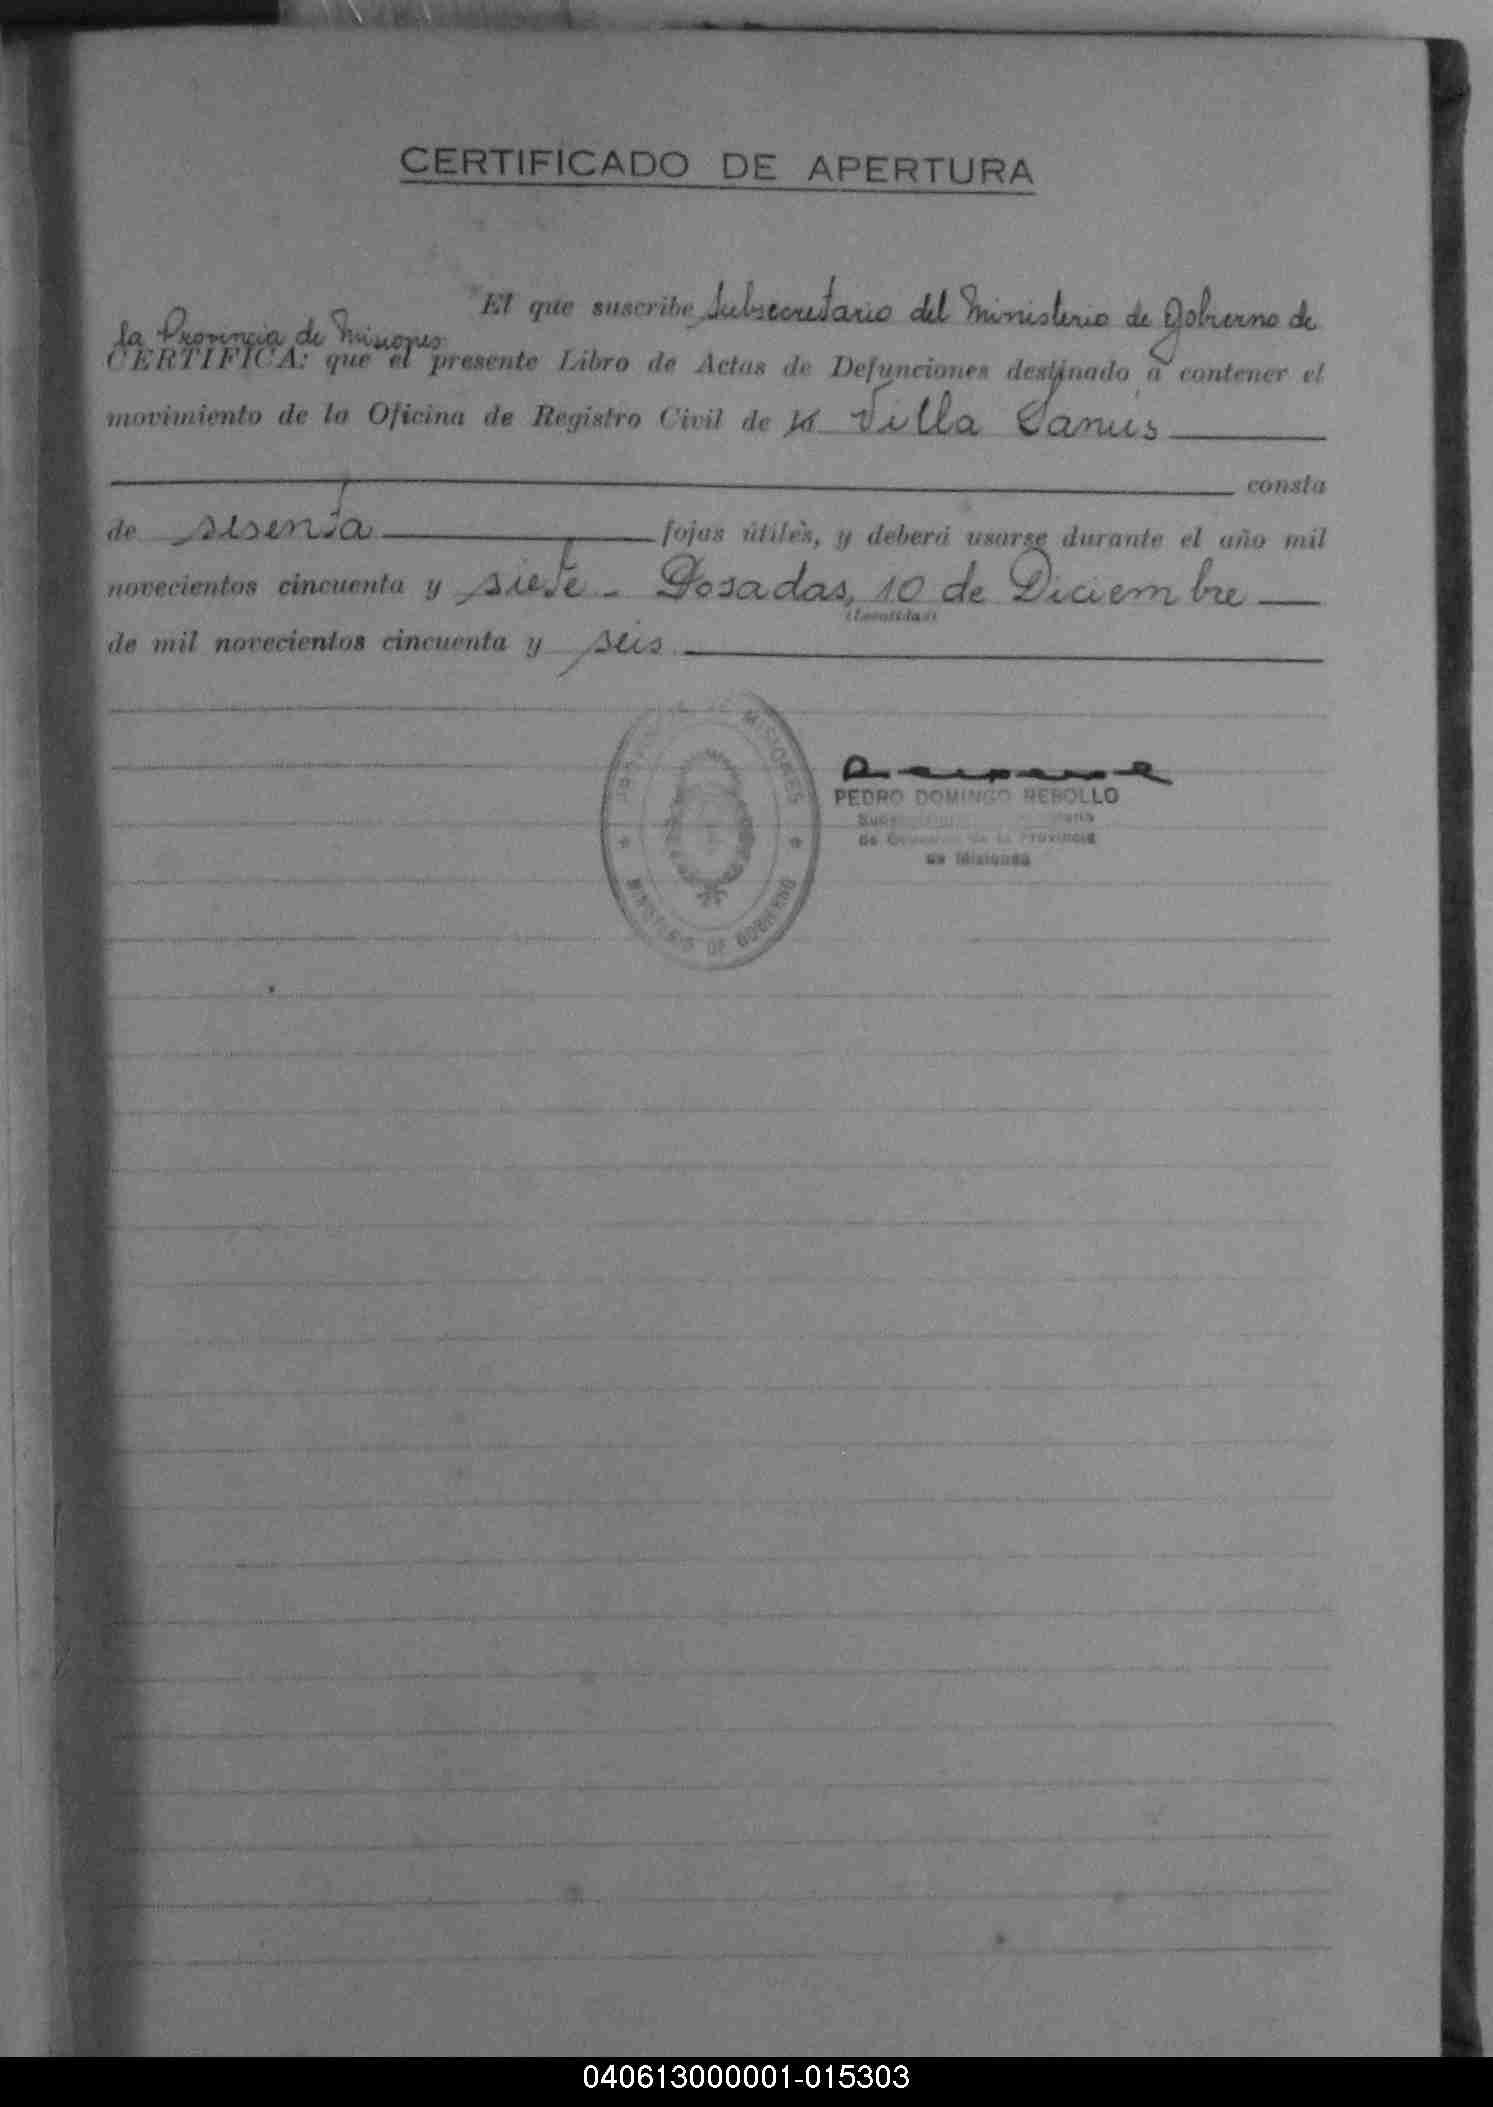 CERTIFICADO DE APERTURA
El que suscribe Subsecretario del Ministerio de Gobierno de
la Provincia de Misiones
CERTIFICA: que el presente Libro de Actas de Defunciones destinado a contener el
movimiento de la Oficina de Registro Civil de Villa Lanús
consta
de sesenta fojas útiles, y deberá usarse durante el año mil
novecientos cincuenta y siete - Posadas, 10 de Diciembre
(Localidad)
de mil novecientos cincuenta y seis
DE MISIONES
MINISTERIO DE GOBIERNO
PEDRO DOMINGO REBOLLO
de la Provincia
de Misiones
040613000001-015303